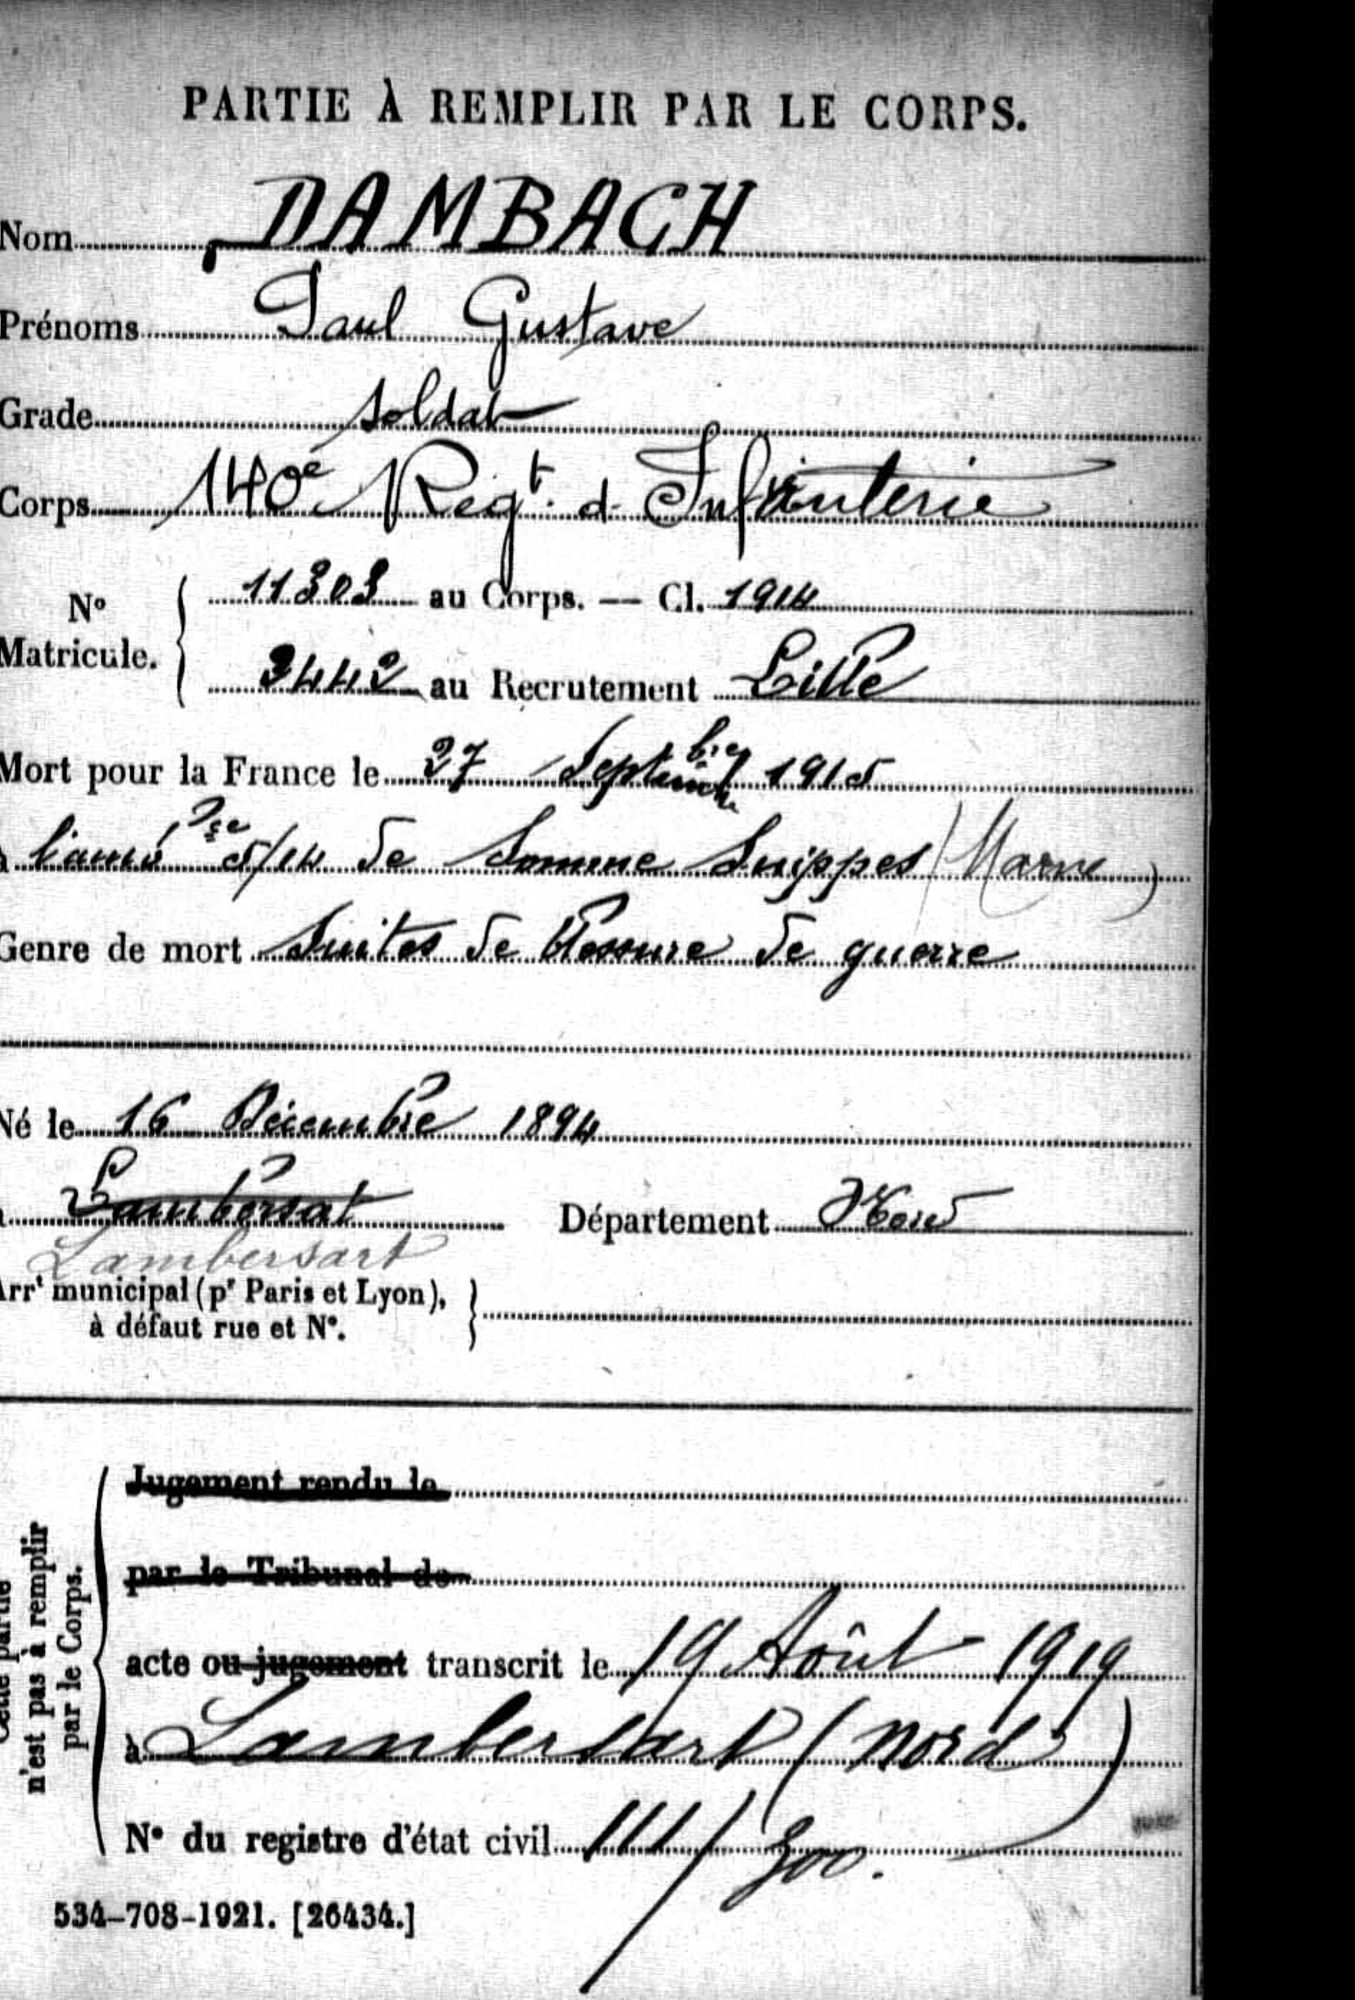 PARTIE À REMPLIR PAR LE CORPS.
Nom DAMBACH
Prénoms Paul Gustave
Grade soldat
Corps 140e Regt. d'Infanterie
N° Matricule. 11303 au Corps. — Cl. 1914
3442 au Recrutement Lille
Mort pour la France le 27 Septembre 1915
à l'amb. 5/14 de Somme Suippes (Marne)
Genre de mort Suites de blessure de guerre
Né le 16 Décembre 1894
Lambersat Département Nord
Lambersart
Arrt municipal (pr Paris et Lyon),
à défaut rue et N°.
Cette partie
n'est pas à remplir
par le Corps.
Jugement rendu le
par le Tribunal de
acte ou jugement transcrit le 19 Août 1919
à Lambersart (Nord)
N° du registre d'état civil 111/300.
534-708-1921. [26434.]